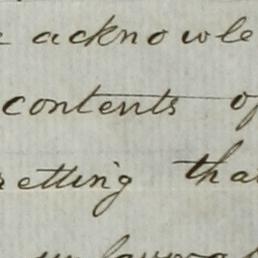 acknowle
contents of
etting that